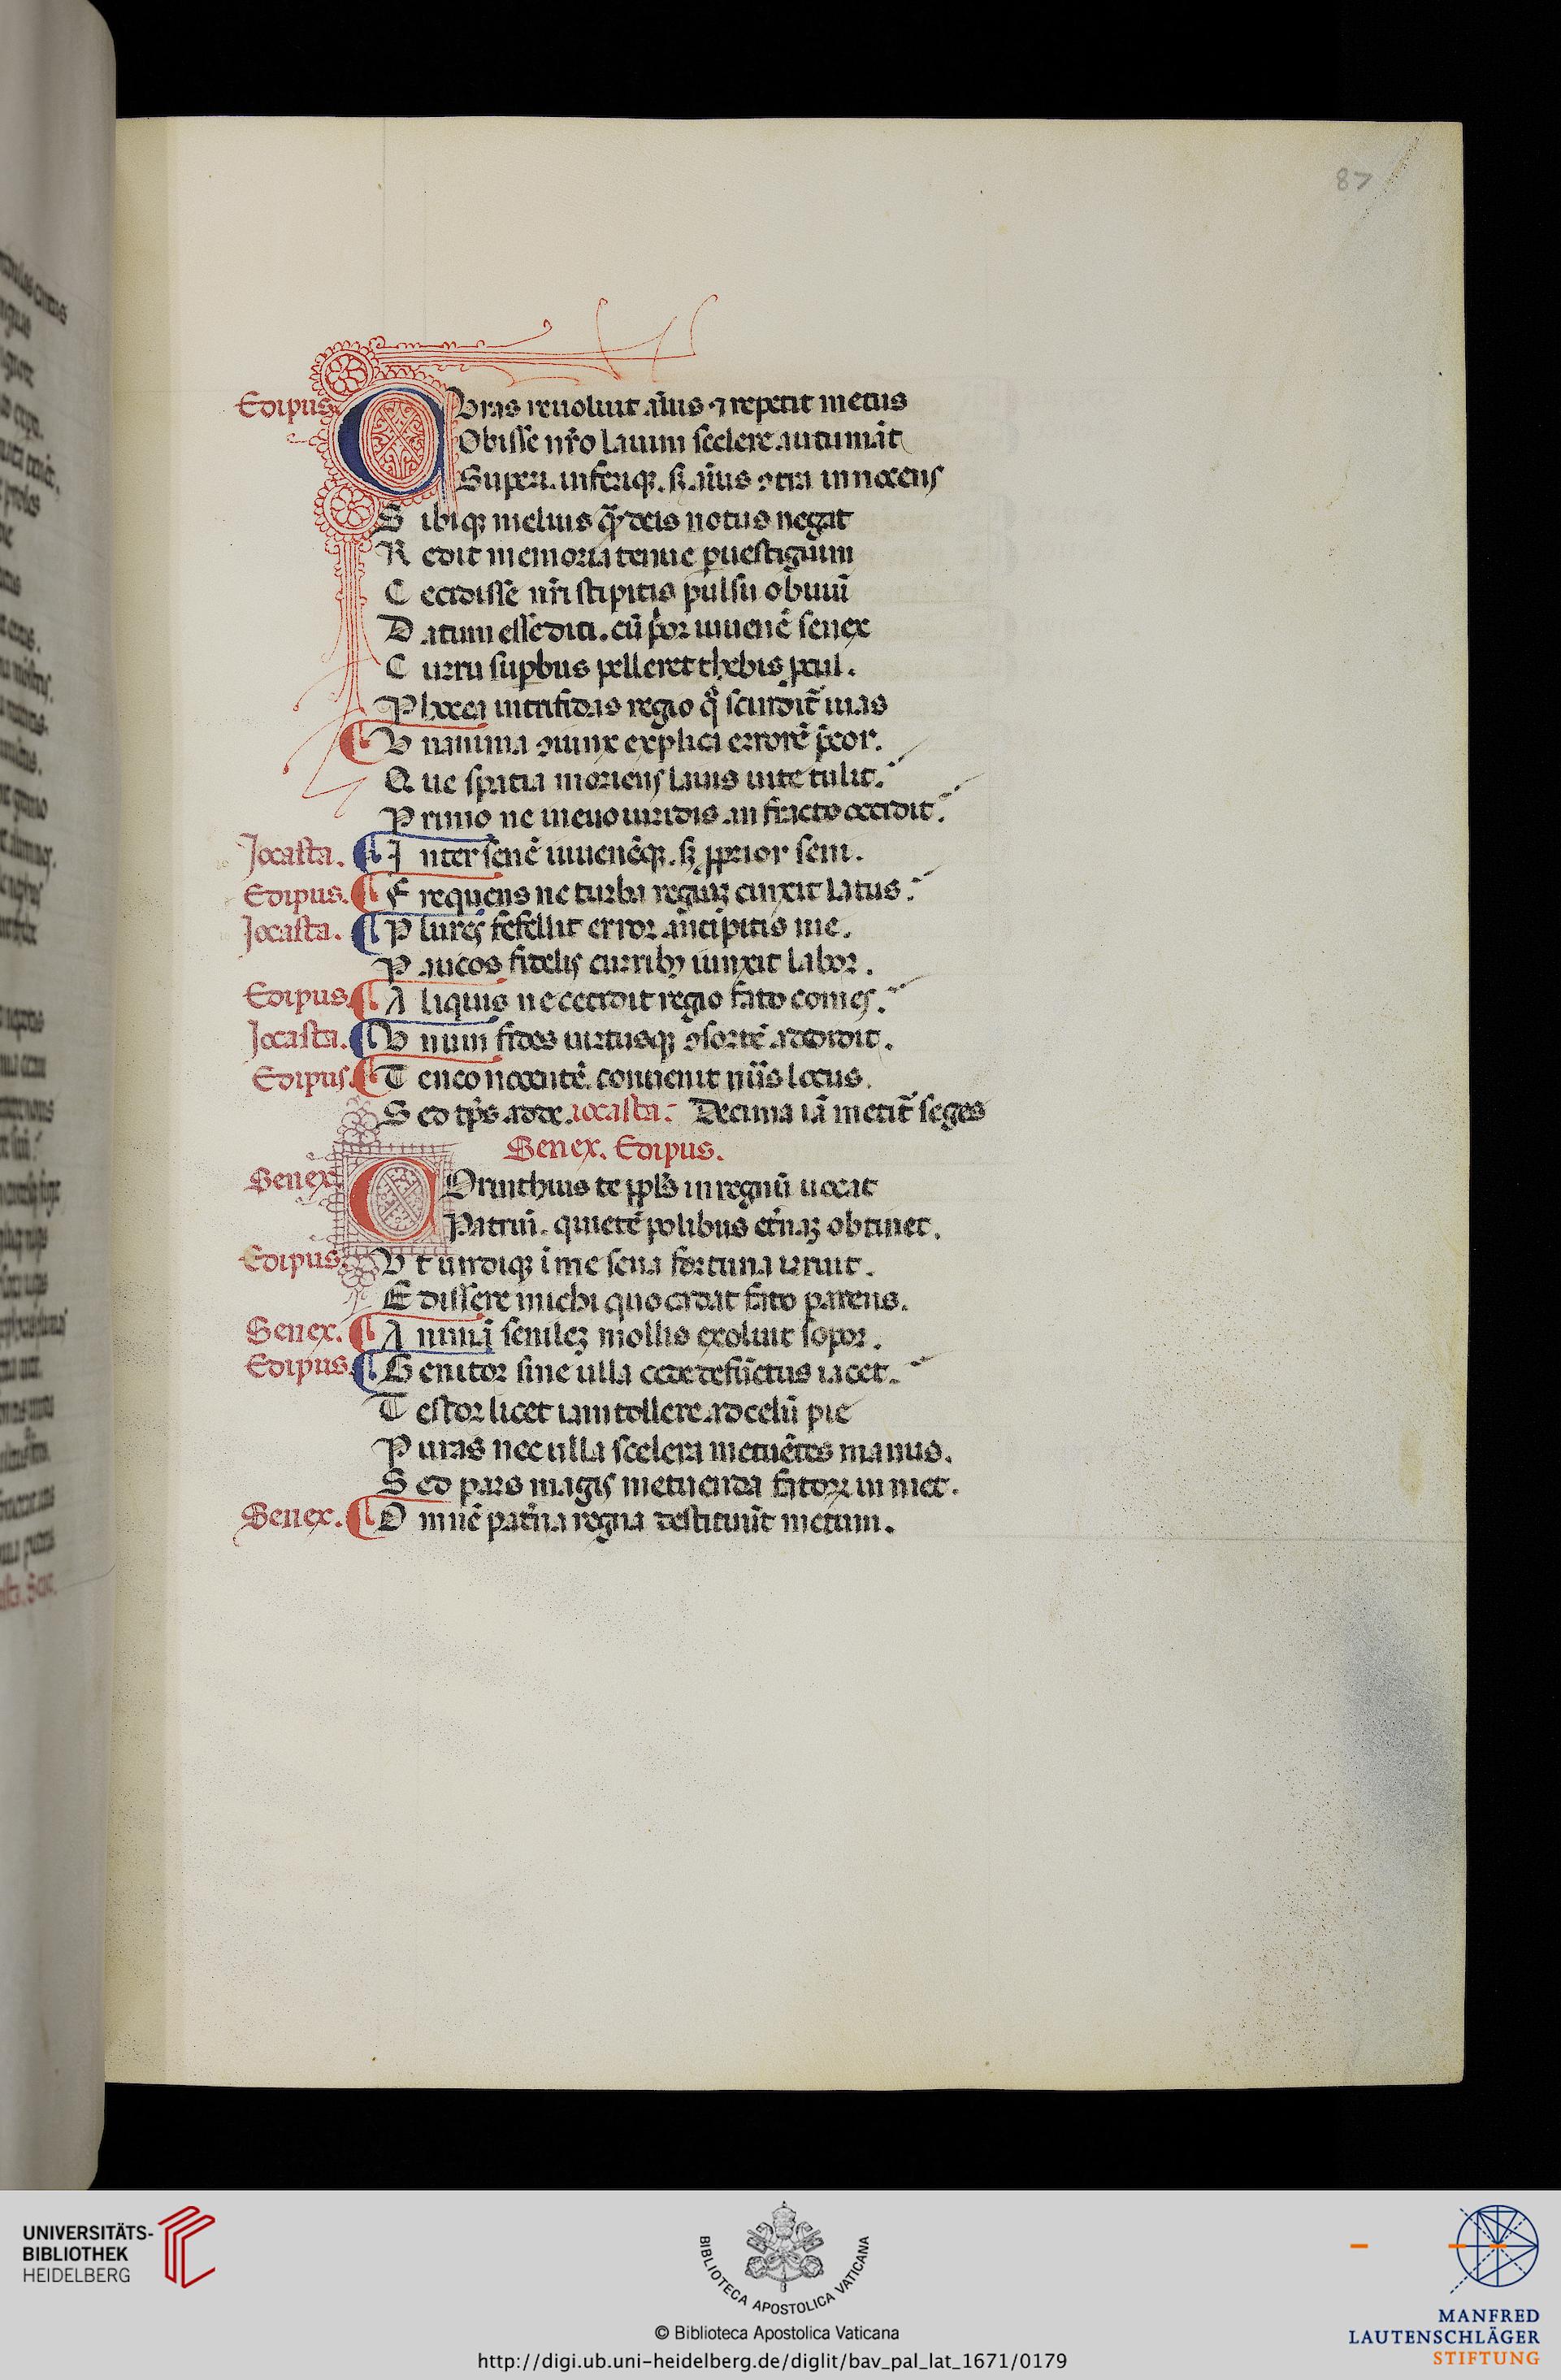 87
Edipus. CVras reuoluit aius ⁊ repetit metus
Obisse nr̄o laium scelere autumāt
Superi inferiq;. sꝫ aīus ꝯtra innocens
Sibiq; melius q̄ deis notus negat
Redit memoria tenue ꝑ uestigium
Cecidisse nr̄i stipitis pulsu obuiū
Datum esse diti. cū p̄or iuuenē senex
Curru sup̱bus pelleret thebis ꝓcul.
Phocea intrifidas regio q̄ scindit̄ uias
Vnanima ꝯiunx explica errorē p̄cor.
Que spatia moriens laius uite tulit.
Primo ne in euo uiridis an fracto occidit.
Jocasta. Inter senē iuuenēq;. sꝫ ꝓprior seni.
Edipus. Frequens ne turba regiaꝫ cinxit latus.
Jocasta. Plures fefellit error ancipitis uie.
Paucos fidelis curribꝫ iunxit labor.
Edipus. Aliquis ne cecidit regio fato comes.
Jocasta. Vnum fides uirtusq; ꝯsortē addidit.
Edipus. Teneo nocentē. conuenit nūs locus.
Sed tp̄s adde. iocasta. Decima iā metit̄ seges
Senex. Edipus.
Senex. COrinthius te ppl̄s in regnū uocat
Patriū. quietē polibus et̄naꝫ obtinet.
Edipus. Vt undiq; ī me seua fortuna irruit.
Edissere michi quo cadat fato parens.
Senex. Animā senileꝫ mollis exoluit sopor.
Edipus. Genitor sine ulla cede defūctus iacet.
Testor licet iam tollere ad celū pie
Puras nec ulla scelera metuētes manus.
Sed pars magis metuenda fatoꝝ manet.
Senex. Omnē pat̄na regna destituūt metum.
UNIVERSITÄTS-
BIBLIOTHEK
HEIDELBERG
BIBLIOTECA APOSTOLICA VATICANA
© Biblioteca Apostolica Vaticana
http://digi.ub.uni-heidelberg.de/diglit/bav_pal_lat_1671/0179
MANFRED
LAUTENSCHLÄGER
STIFTUNG